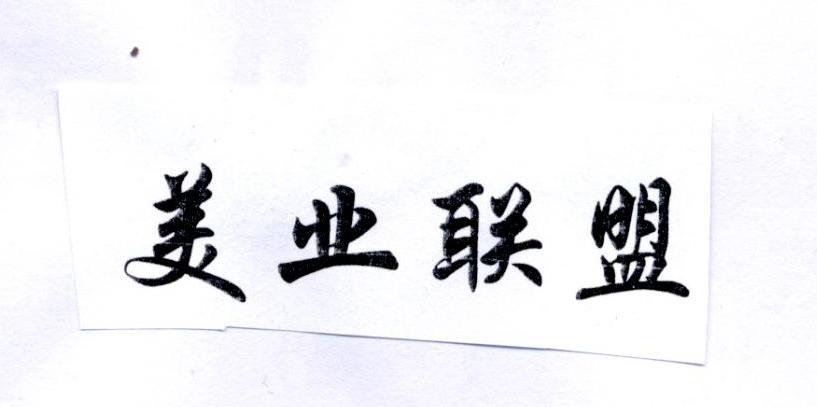 美业联盟